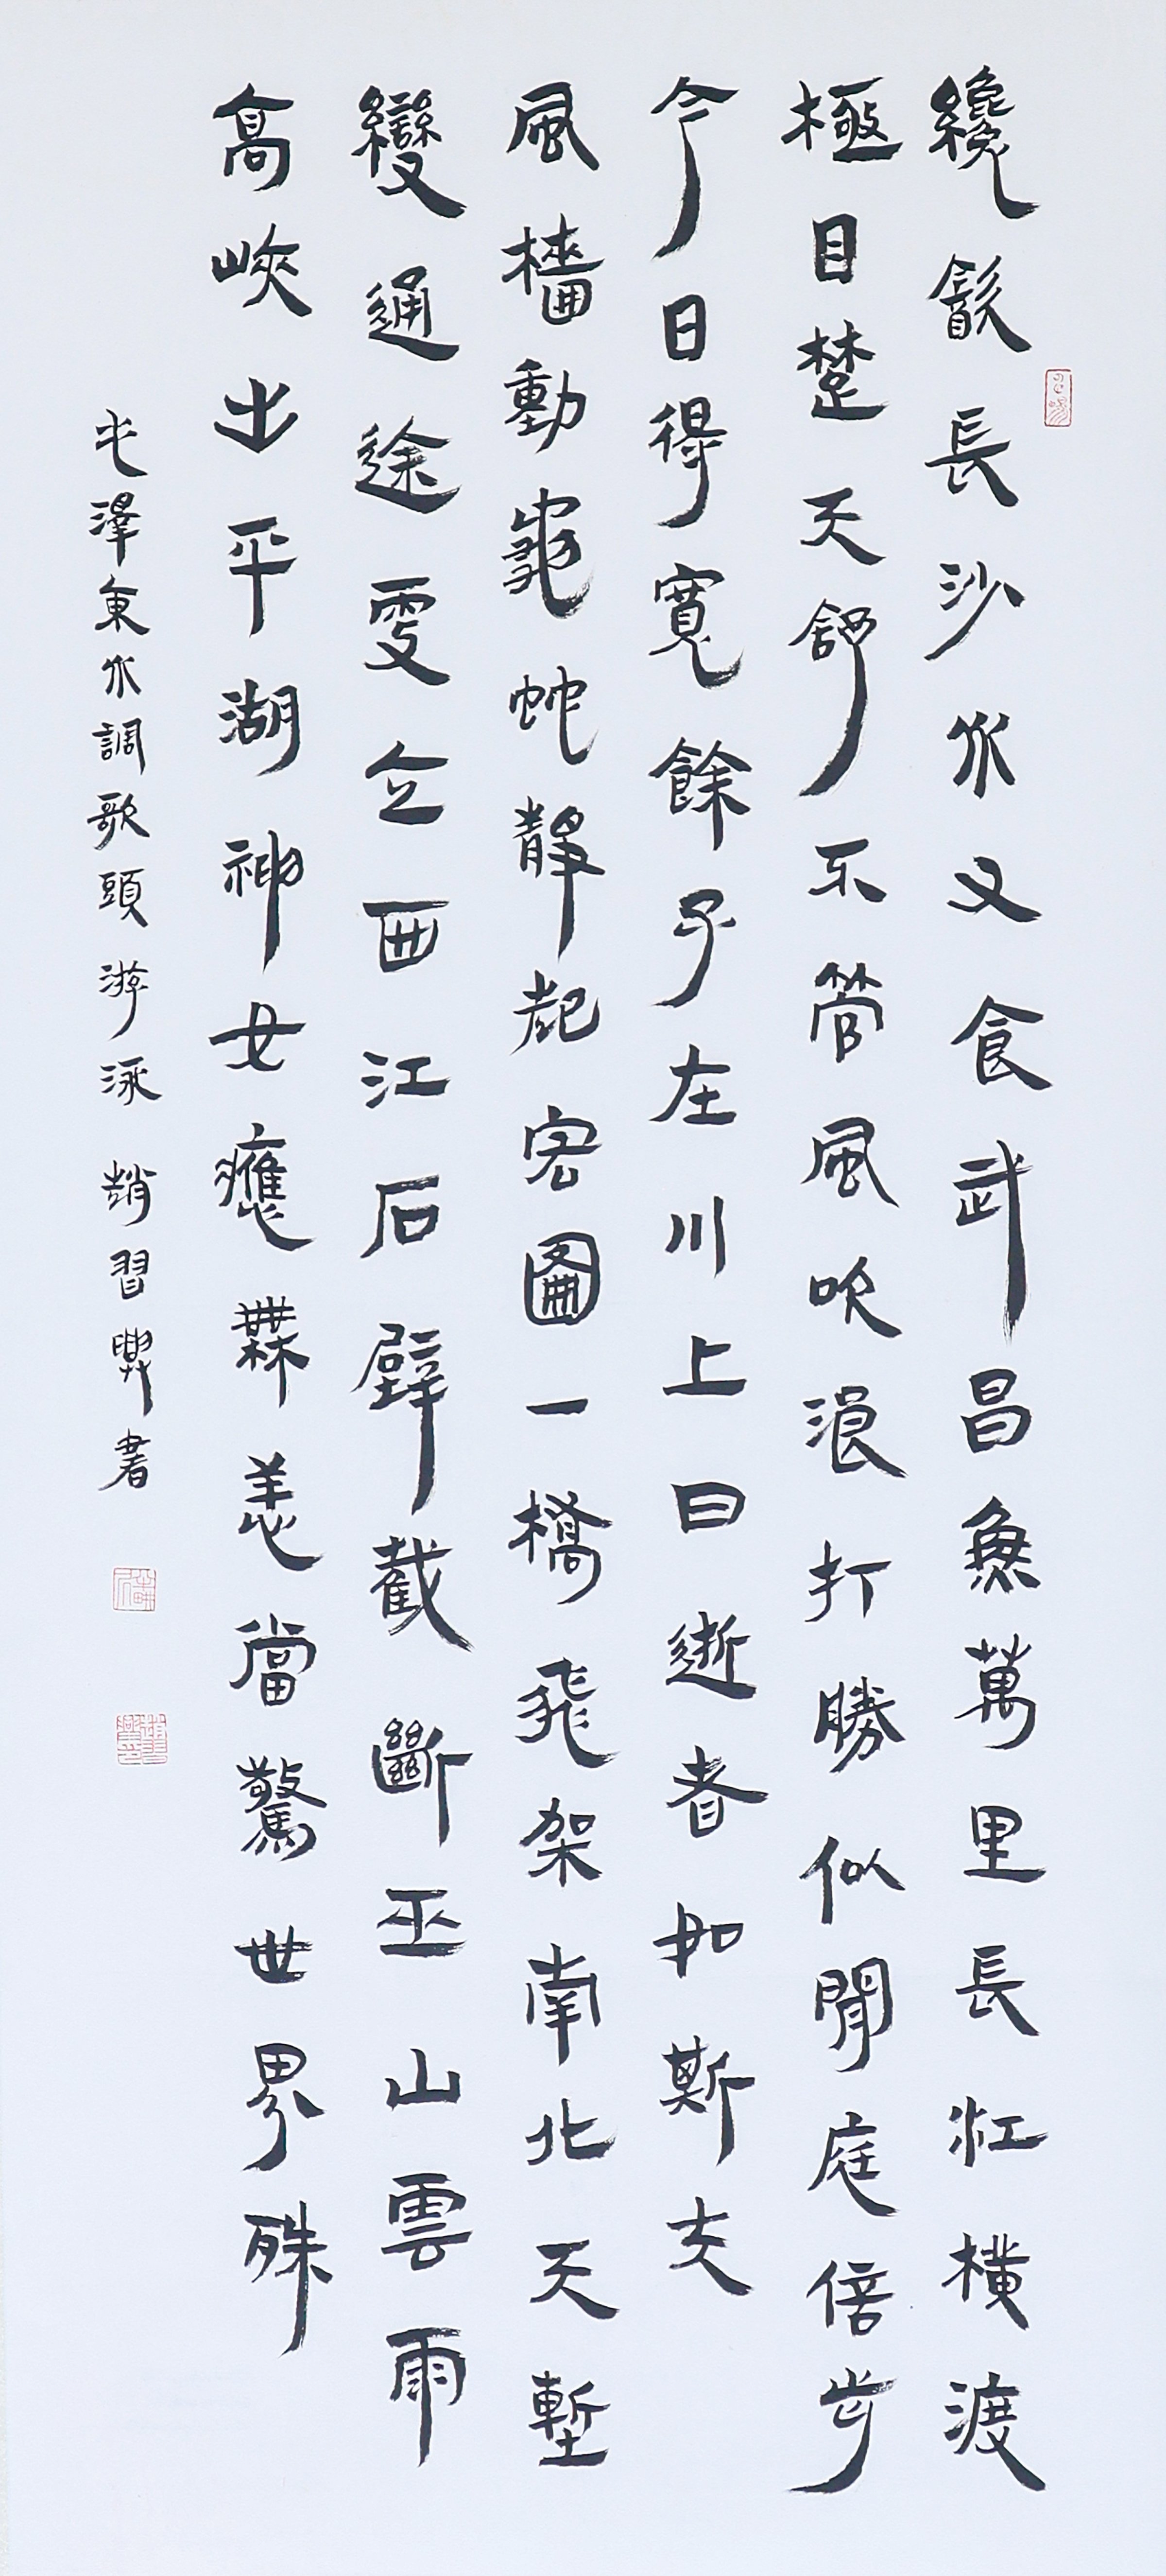 纔飲長沙水又食武昌魚萬里長江橫渡
極目楚天舒不管風吹浪打勝似閒庭信步
今日得寬餘子在川上曰逝者如斯夫
風檣動龜蛇靜起宏圖一橋飛架南北天塹
變通途更立西江石壁截斷巫山雲雨
高峽出平湖神女應無恙當驚世界殊
毛澤東水調歌頭游泳 趙習書